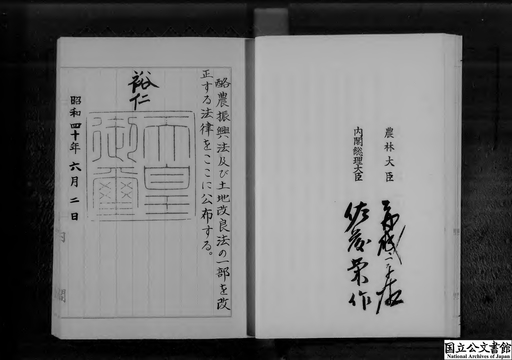 酪農振興法及び土地改良法の一部を改
正する法律をここに公布する。
裕仁
天皇
御璽
昭和四十年六月二日
農林大臣
内閣総理大臣
佐藤栄作
国立公文書館
National Archives of Japan